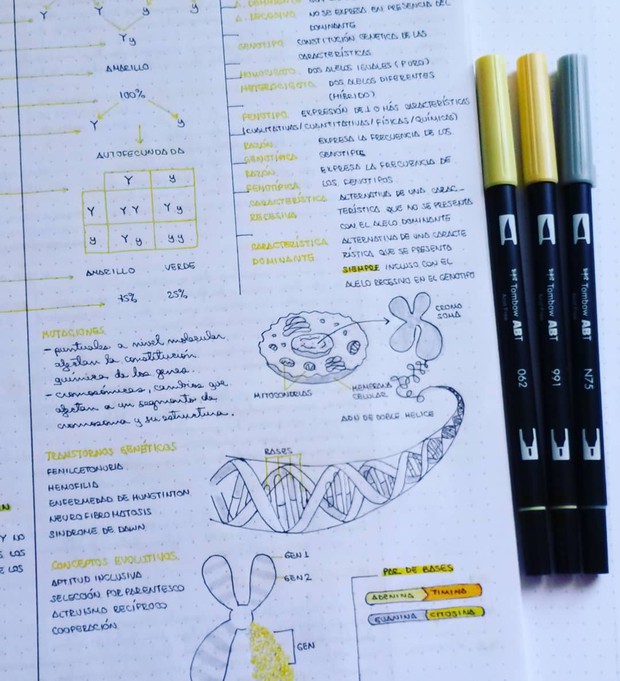 Y y Y y
Y y
AMARILLO
100%
Y y
AUTOFECUNDADA
Y y
Y YY Yy
y Yy yy
AMARILLO VERDE
75% 25%
A. RECESIVO NO SE EXPRESA EN PRESENCIA DEL
DOMINANTE
GENOTIPO CONSTITUCIÓN GENÉTICA DE LAS
CARACTERÍSTICAS
HOMOCIGOTO DOS ALELOS IGUALES (PURO)
HETEROCIGOTO DOS ALELOS DIFERENTES
(HÍBRIDO)
FENOTIPO EXPRESIÓN DE 1 O MÁS CARACTERÍSTICAS
(CUALITATIVAS/CUANTITATIVAS/FÍSICAS/QUÍMICAS)
RAZÓN EXPRESA LA FRECUENCIA DE LOS
GENOTÍPICA GENOTIPOS
RAZÓN EXPRESA LA FRECUENCIA DE
FENOTÍPICA LOS FENOTIPOS
CARACTERÍSTICA ALTERNATIVA DE UNA CARAC-
RECESIVA TERÍSTICA QUE NO SE PRESENTA
CON EL ALELO DOMINANTE
CARACTERÍSTICA ALTERNATIVA DE UNA CARACTE
DOMINANTE RÍSTICA QUE SE PRESENTA
SIEMPRE INCLUSO CON EL
ALELO RECESIVO EN EL GENOTIPO
MUTACIONES
- puntuales a nivel molecular
afectan la constitución
química de los genes.
- cromosómicas, cambios que
afectan a un segmento de
cromosoma y su estructura.
CROMO
SOMA
MITOCONDRIAS
MEMBRANA
CELULAR
ADN DE DOBLE HELICE
BASES
TRANSTORNOS GENÉTICOS
FENILCETONURIA
HEMOFILIA
ENFERMEDAD DE HUNGTINTON
NEUROFIBROMATOSIS
SINDROME DE DAWN
CONCEPTOS EVOLUTIVOS
APTITUD INCLUSIVA
SELECCIÓN POR PARENTESCO
ALTRUISMO RECÍPROCO
COOPERACIÓN
GEN 1
GEN 2
GEN
PAR DE BASES
ADENINA TIMINA
GUANINA CITOSINA
Tombow ABT 062
Tombow ABT 991
Tombow ABT N75